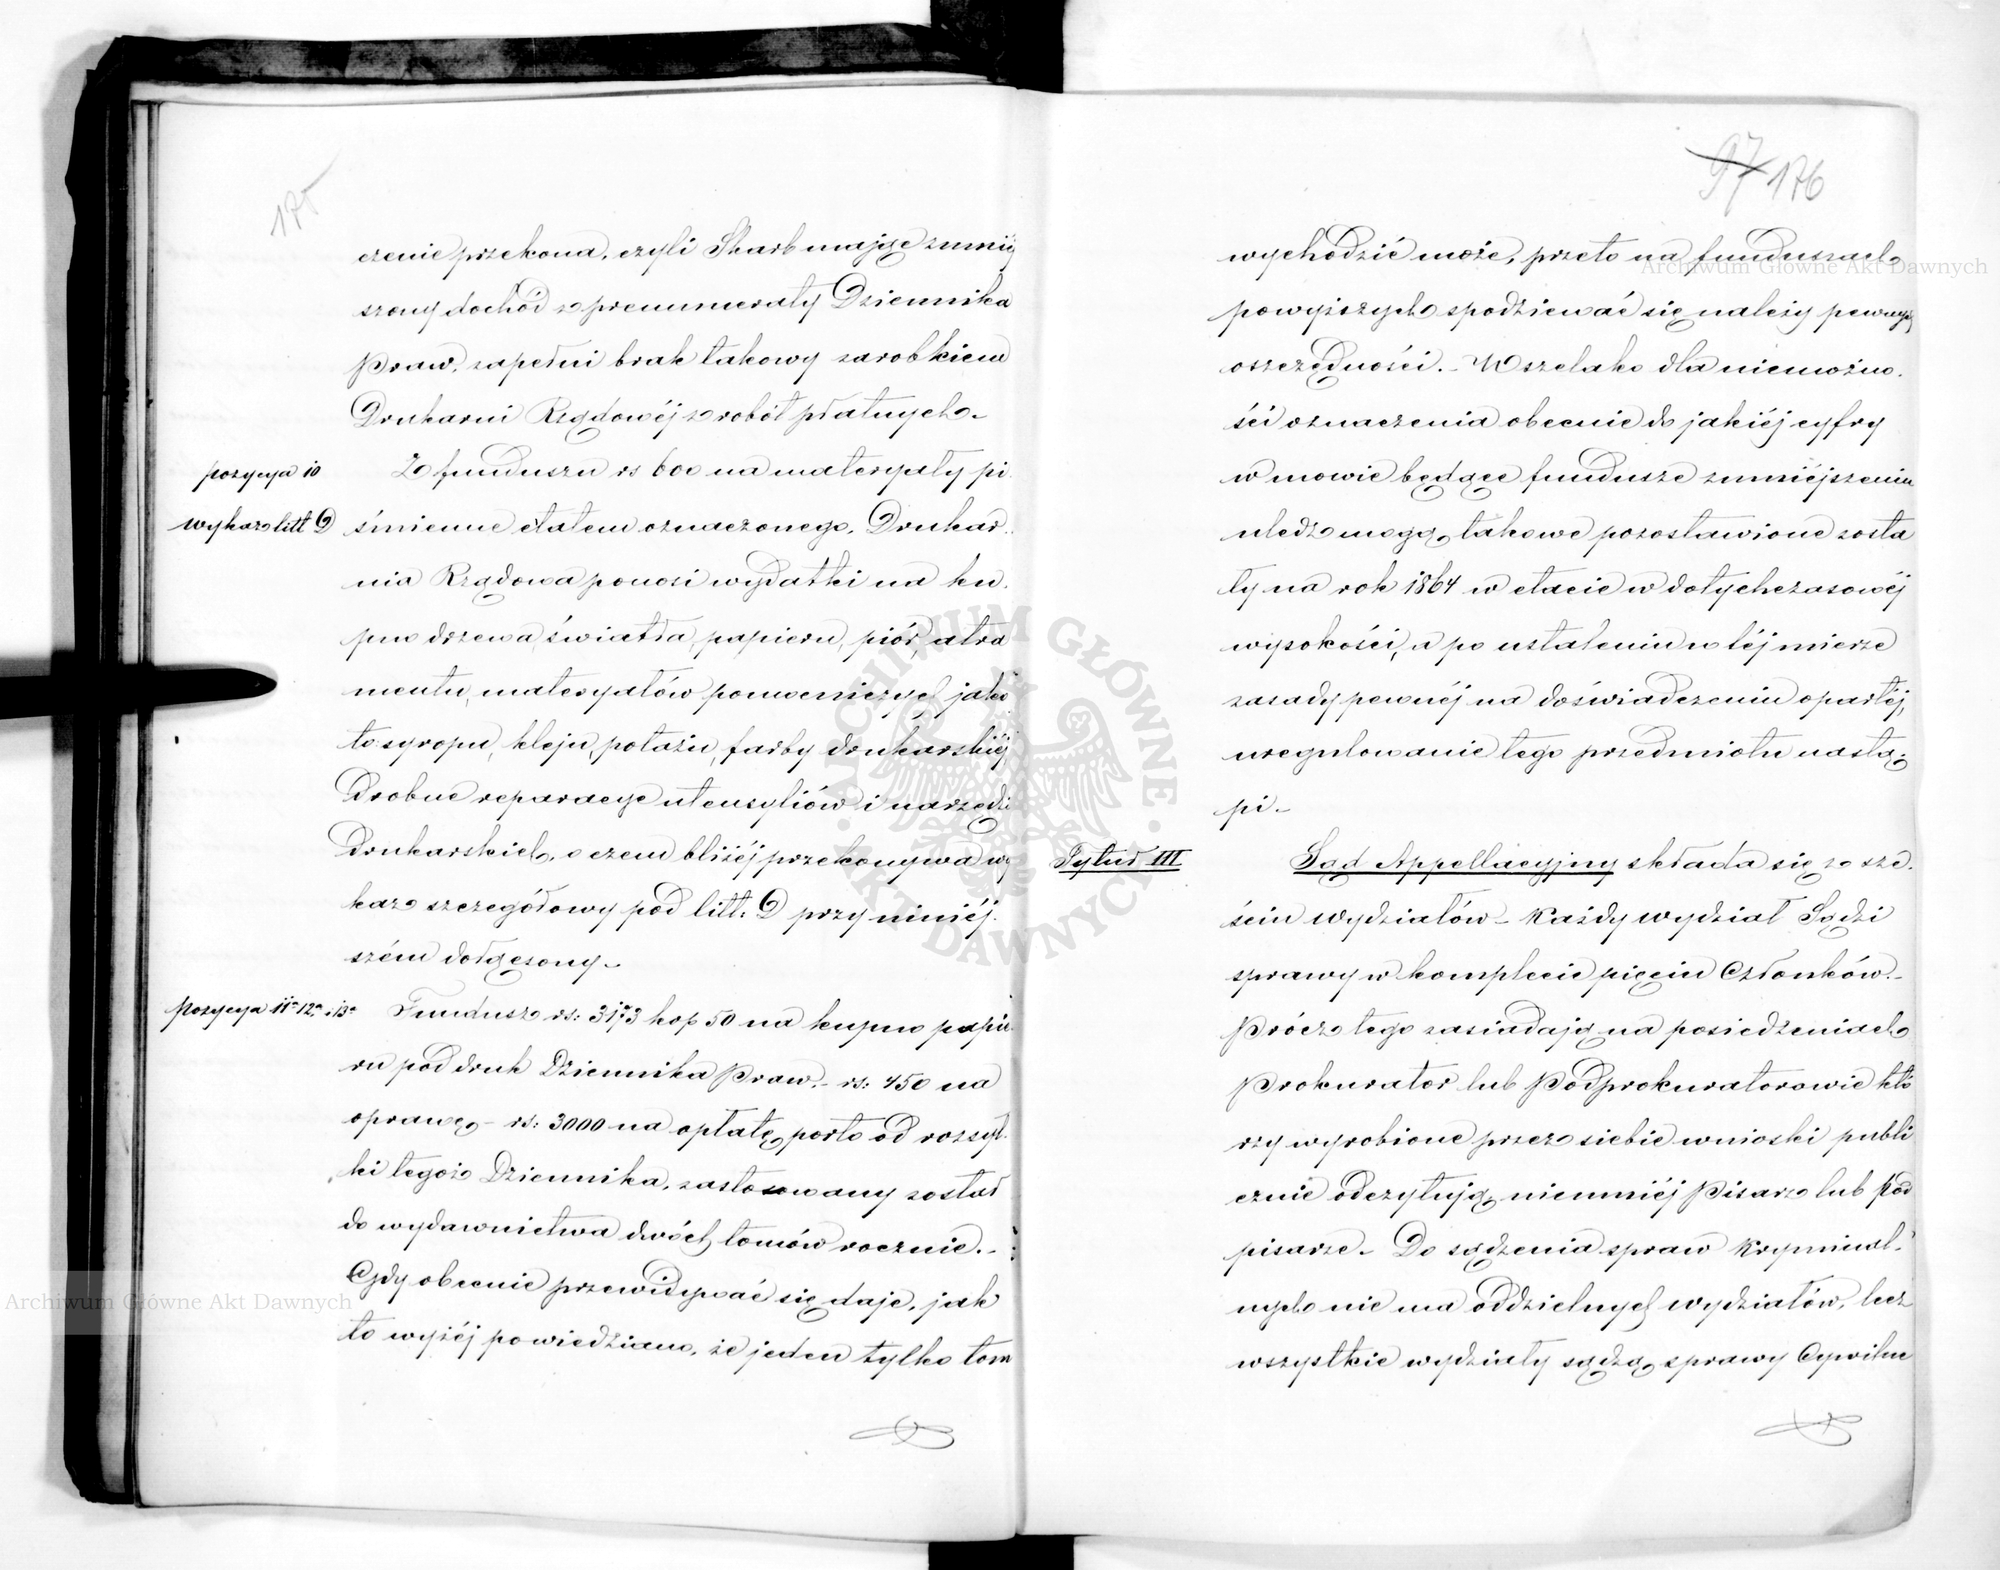 175
czenie przekona, czyli Skarb mając zmniej
szony dochód z prenumeraty Dziennika
Praw, zapełni brak takowy zarobkiem
Drukarni Rządowéj z robót płatnych.-
pozycya 10
wykaz litt D
Z funduszu rs 600 na materyały pi
śmienne etatem oznaczonego, Drukar-
nia Rządowa ponosi wydatki na ku-
pno drzewa, światła, papieru, piór, atra
mentu, materyałów pomocniczych jako
to: syropu, kleju, potażu, farby drukarskiéj
drobne reparacye utensyliów i narzędzi
drukarskich, o czem bliżéj przekonywa wy
kaz szczegółowy pod litt: D przy niniéj-
szém dołączony.-
pozycya 11a 12a i 13a
Fundusz rs: 3173 kop 50 na kupno papie-
ru pod druk Dziennika Praw.- rs: 450 na
oprawę - rs: 3000 na opłatę porto od rozsył-
ki tegoż Dziennika, zastosowany został
do wydawnictwa dwóch tomów rocznie.-
Gdy obecnie przewidywać się daje, jak
to wyżéj powiedziano, że jeden tylko tom
97 176
wychodzić może, przeto na funduszach
powyższych spodziewać się należy pewnych
oszczędności.- Wszelako dla niemożno-
ści oznaczenia obecnie do jakiéj cyfry
w mowie będące fundusze zmniéjszeniu
uledz mogą, takowe pozostawione zosta
ły na rok 1864 w etacie w dotychczasowéj
wysokości, a po ustaleniu w téj mierze
zasady pewnéj na doświadczeniu opartéj,
uregulowanie tego przedmiotu nastą-
pi.-
Tytuł III
Sąd Appellacyjny składa się z sze-
ściu wydziałów - Każdy wydział Sądzi
sprawy w komplecie pięciu Członków.-
Prócz tego zasiadają na posiedzeniach
Prokurator lub Podprokuratorowie któ
rzy wyrobione przez siebie wnioski publi
cznie odczytują, niemniéj Pisarz lub Pod
pisarze.- Do sądzenia spraw Kryminal-
nych nie ma oddzielnych wydziałów, lecz
wszystkie wydziały sądzą sprawy Cywilne
Archiwum Główne Akt Dawnych
Archiwum Główne Akt Dawnych
ARCHIWUM GŁÓWNE AKT DAWNYCH